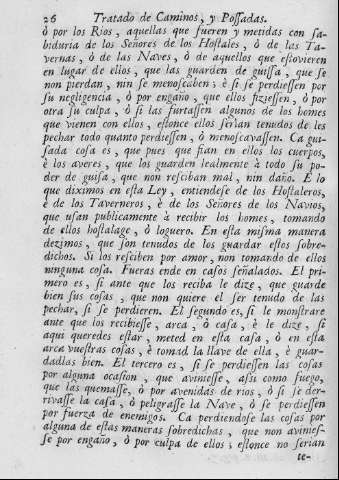 26 Tratado de Caminos, y Possadas.
ò por los Rios, aquellas que fueren y metidas con sa-
biduria de los Señores de los Hostales, ò de las Ta-
vernas, ò de las Naves, ò de aquellos que estovieren
en lugar de ellos, que las guarden de guissa, que se
non pierdan, nin se menoscaben; è si se perdiessen por
su negligencia, ò por engaño, que ellos fiziessen, ò por
otra su culpa, ò si las furtassen algunos de los homes
que vienen con ellos, estonce ellos serian tenudos de les
pechar todo quanto perdiessen, ò menoscavassen. Ca gui-
sada cosa es, que pues que fian en ellos los cuerpos,
è los averes, que los guarden lealmente à todo su po-
der de guisa, que non resciban mal, nin daño. E lo
que diximos en esta Ley, entiendese de los Hostaleros,
è de los Taverneros, è de los Señores de los Navios,
que usan publicamente à recibir los homes, tomando
de ellos hostalage, ò loguero. En esta misma manera
dezimos, que son tenudos de los guardar estos sobre-
dichos. Si los resciben por amor, non tomando de ellos
ninguna cosa. Fueras ende en casos señalados. El pri-
mero es, si ante que los reciba le dize, que guarde
bien sus cosas, que non quiere el ser tenudo de las
pechar, si se perdieren. El segundo es, si le monstrare
ante que los recibiesse, arca, ò casa, è le dize, si
aqui queredes estar, meted en esta casa, ò en esta
arca vuestras cosas, è tomad la llave de ella, è guar-
dadlas bien. El tercero es, si se perdiessen las cosas
por alguna ocasion, que aviniesse, assi como fuego,
que las quemasse, ò por avenidas de rios, ò si se der-
rivasse la casa, ò peligrasse la Nave, ò se perdiessen
por fuerza de enemigos. Ca perdiendose las cosas por
alguna de estas maneras sobredichas, que non avinies-
se por engaño, ò por culpa de ellos, estonce no serian
te-